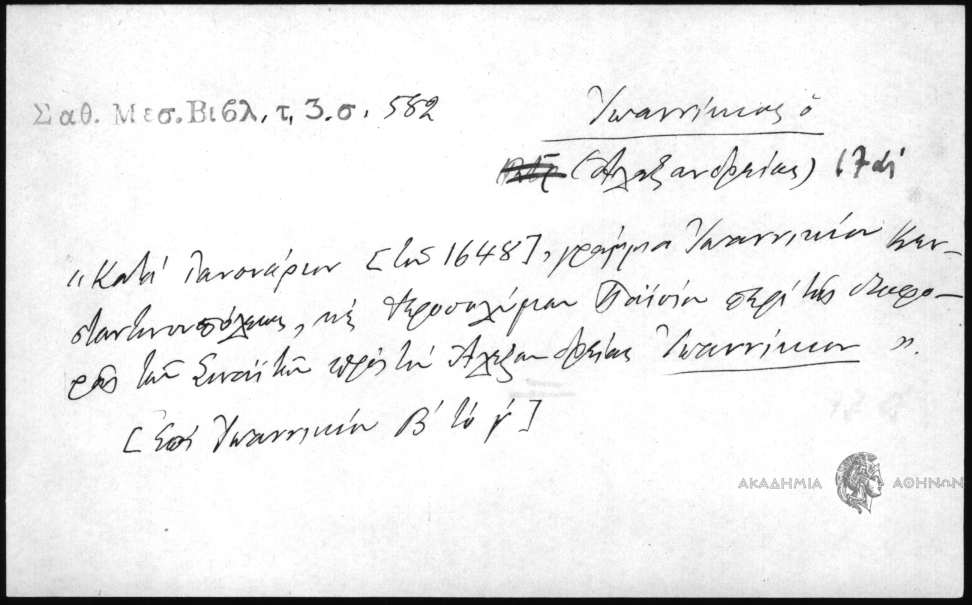 Σαθ. Μεσ. Βιβλ. τ. 3. σ. 582
Ἰωαννίκιος ὁ
(Ἀλεξανδρείας) 17 αἰ
"Κατά Ἰανουάριον [τοῦ 1648], γράμμα Ἰωαννικίου Κων-
σταντινουπόλεως, κὲ Ἱεροσολύμων Παϊσίου περὶ τῆς
ρᾶς τῶν Σιναϊτῶν πρὸς τὸν Ἀλεξανδρείας Ἰωαννίκιον".
[Ἐπί Ἰωαννικίου Β´ τὸ γ´]
ΑΚΑΔΗΜΙΑ ΑΘΗΝΩΝ